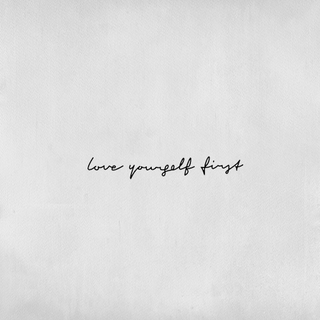 love yourself first